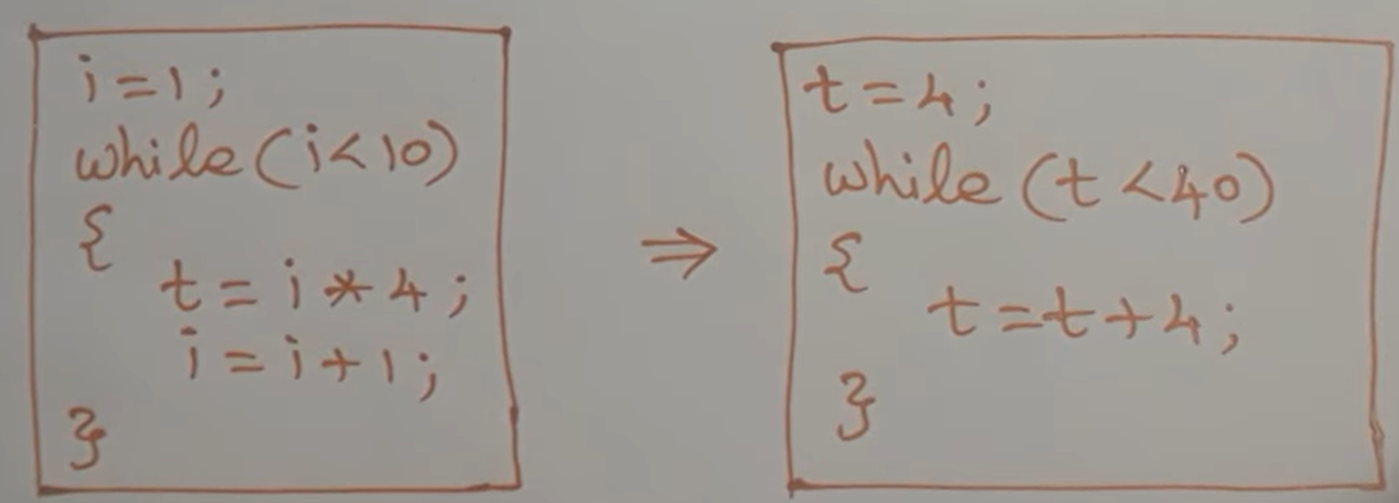 i=1;
while(i<10)
{
t=i*4;
i=i+1;
}
⇒
t=4;
while(t<40)
{
t=t+4;
}